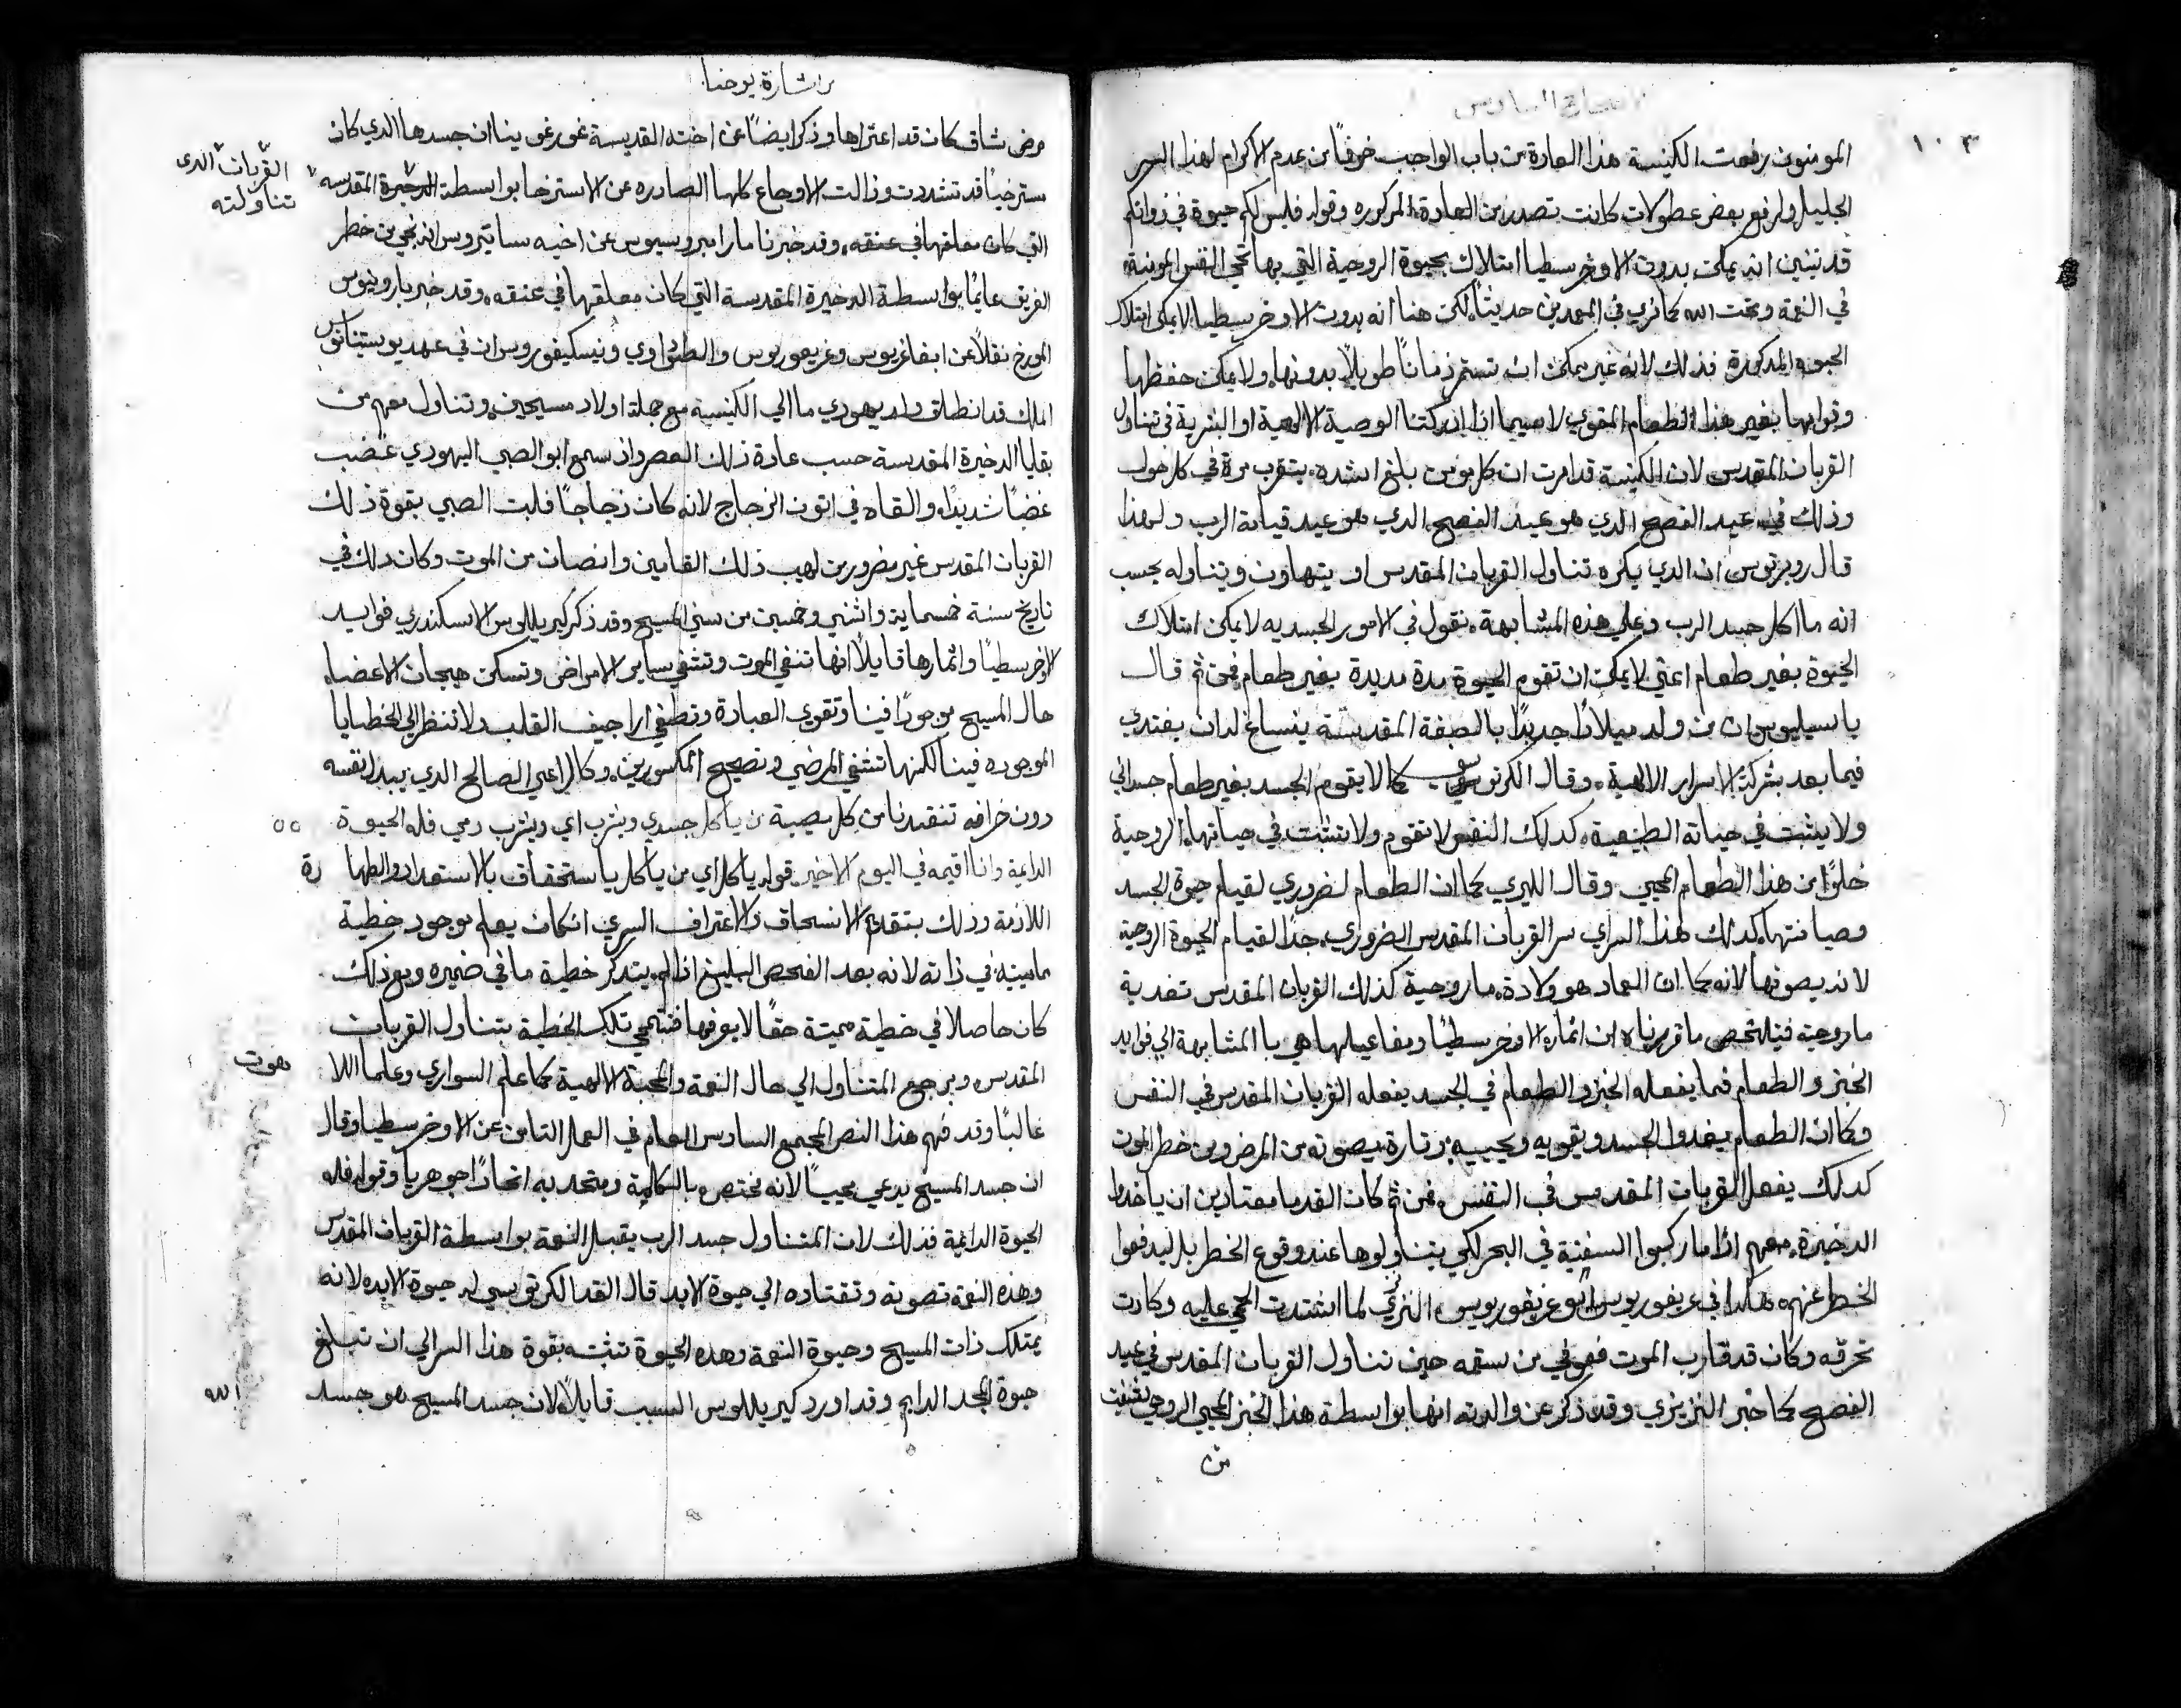 الاصحاح السادس
١٠٣
المومنون رفعت الكنيسة هذا العادة من باب الواجب خوفًا من عدم الاكرام لهذا السر
الجليل ولرفع بعض عطولات كانت تصدر من العادة المركوره وقوله فليس لكم حيوة في ذواتكم
قد تبين انه يمكن بدون الاوخرسطيا امتلاك الحيوة الروحية التي بها تحيي النفس المومنة
في النعمة وتحت الله كما نري في المعمدين حديثًا لكن هنا انه بدون الاوخرسطيا لا يمكن امتلاك
الحيوه المذكورة فذلك لانه غير يمكن ان تستمر زمانًا طويلًا بدونها ولا يمكن حفظها
وقوامها بغير هذا الطعام المقوي لاسيما اذا ادركتنا الوصية الالهية او البشرية في تناول
القربان المقدس لان الكنيسة قد امرت ان كل مومن بلغ اشده يتقرب مرة في كل حول
وذلك في عيد الفصح الذي هو عيد الفصح الذي هو عيد قيامة الرب ولهذا
قال روبرتوس ان الذي يكره تناول القربان المقدس او يتهاون ويتناوله يحسب
انه ما اكل جسد الرب وعلي هذه المشابهة نقول في الامور الجسديه لا يمكن امتلاك
الحيوة بغير طعام اعني لا يمكن ان تقوم الحيوة مدة مديدة بغير طعام فمن ثم قال
باسيليوس ان من ولد ميلادًا جديدًا بالصبغة المقدسة ينساغ له ان يغتدي
فيما بعد بشركة الاسرار الالهية وقال الكرتوسي كما لا يقوم الجسد بغير طعام جسداني
ولا يثبت في حياته الطبيعية كذلك النفس لا تقوم ولا تثبت في حياتها الروحية
خلوًا من هذا الطعام المحيي وقال الليري كما ان الطعام لضروري لقيام حيوة الجسد
وصيانتها كذلك لهذا السر اي سر القربان المقدس الضروري جدًا لقيام الحيوة الروحية
لانه يصونها لانه كما ان العماد هو ولادة ما روحية كذلك القربان المقدس تغدية
ما روحية فيتلخص ما قررناه ان اثمار الاوخرسطيا ومفاعيلها هي بالمشابهة الي فوايد
الخبز والطعام فما يفعله الخبز والطعام في الجسد يفعله القربان المقدس في النفس
وكما ان الطعام يغدوا الجسد ويقويه ويحييه وتارة يصونه من المرض ومن خطر الموت
كدلك يفعل القربان المقدس في النفس فمن ثم كان القدما معتادين ان ياخدوا
الدخيرة معهم اذا ما ركبوا السفينة في البحر لكي يتناولوها عند وقوع الخطر بل ليدفعوا
الخطر عنهم هكذا في غريغوريوس ابو غريغوريوس النزنزي لما اشتدت الحمي عليه وكادت
تحرقه وكان قد قارب الموت فعوفي من سقمه حين تناول القربان المقدس في عيد
الفصح كما خبر النزينزي وقد ذكر عن والدته انها بواسطة هذا الخبز المحيي الروحي شفيت
من
بشارة يوحنا
مرض شاق كان قد اعتراها وذكر ايضًا عن اخته القديسة غورغونيا ان جسدها الذي كان
مسترخيًا قد تشددت وزالت الاوجاع كلها الصادره عن الاسترخا بواسطة الدخيرة المقدسه
القربان الدي
تناولته
التي كان معلقها في عنقه وقد خبرنا مار امبروسيوس عن اخيه ساتيروس انه نجي من خطر
الغريق عايمًا بواسطة الدخيرة المقدسة التي كان معلقها في عنقه وقد خبر بارونيوس
المورخ نقلًا عن ابفاغريوس وغريغوريوس والطوراوي ونيسكيفوروس ان في عهد يوستينانوس
الملك قد انطلق ولد يهودي ما الي الكنيسة مع جملة اولاد مسيحيين وتناول معهم من
بقايا الدخيرة المقدسة حسب عادة ذلك العصر واذ سمع ابو الصبي اليهودي غضب
غضبًا شديدًا والقاه في اتون الزجاج لانه كان زجاجًا فلبت الصبي بقوة ذلك
القربان المقدس غير مضرور من لهيب ذلك القامين وانصان من الموت وكان دلك في
تاريخ سنة خمسماية واثنين وخمسين من سني المسيح وقد ذكر كيريللوس الاسكندري فوايد
الاوخرسطيا واثمارها قايلًا انها تنفي الموت وتشفي ساير الامراض وتسكن هيجان الاعضاء
حال المسيح موجودًا فينا وتقوي العبادة وتطفي اراجيف القلب ولا تنظر الي الخطايا
الموجوده فينا لكنها تشفي المرضي وتصحح المكسورين وكالراعي الصالح الذي يبدل نفسه
دون خرافه تنقدنا من كل مصيبة من ياكل جسدي ويشرب اي ويشرب دمي فله الحيوة
٥٥
الدايمة وانا اقيمه في اليوم الاخير قوله ياكل اي من ياكل باستحقاق بالاستعداد والطها رة
اللازمة وذلك بتقديم الانسحاق والاعتراف السري ان كان يعلم بوجود خطية
مميتة في ذاته لانه بعد الفحص البليغ اذا لم يتدكر خطية ما في ضميره ومع ذلك
كان حاصلا في خطية مميتة حقًا لا يعرفها فتمحي تلك الخطية بتناول القربان
المقدس ويرجع المتناول الي حال النعمة والمحبة الالهية كما علم السواري وعلما اللا هوت
غالبًا وقد فهم هذا النص المجمع السادس العام في العمل الثامن عن الاوخرسطيا وقال
ان جسد المسيح يدعي محييًا لانه مختص بالكلمة ومتحد به اتحادًا جوهريا وقوله فله
الحيوة الدايمة فذلك لان المتناول جسد الرب يقبل النعمة بواسطة القربان المقدس
وهذه النعمة تصونه وتقتاده الي حيوة الابد قال القدا الكرتوسي له حيوة الابد لانه
يمتلك ذات المسيح وحيوة النعمة وهذه الحيوة تثبته بقوة هذا السر الي ان تبلغ
حيوة المجد الدايم وقد اورد كيريللوس السبب قايلًا لان جسد المسيح هو جسد
الله